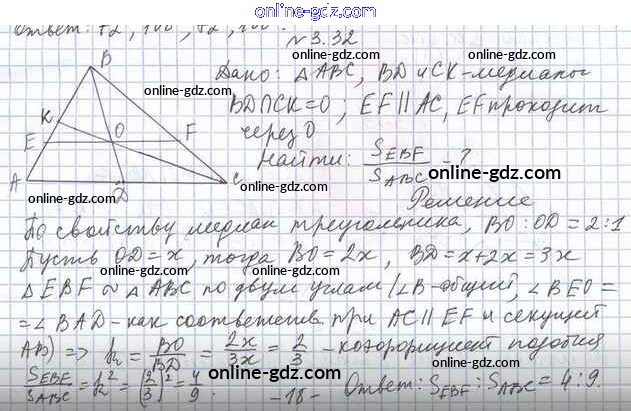 online-gdz.com
Ответ: 72, 108, 72, 108.
N 3.32
B
K
O
E
F
A
D
C
Дано: △ABC, BD и CK-медианы
BD∩CK=O; EF∥AC, EF проходит
через O
Найти: S_EBF/S_ABC - ?
Решение
По свойству медиан треугольника, BO:OD=2:1
Пусть OD=x, тогда BO=2x, BD=x+2x=3x
△EBF ~ △ABC по двум углам (∠B-общий, ∠BEO=
=∠BAD-как соответств. при AC∥EF и секущей
AB) => k = BO/BD = 2x/3x = 2/3 - коэффициент подобия
S_EBF/S_ABC = k² = (2/3)² = 4/9.
Ответ: S_EBF : S_ABC = 4:9.
-18-
online-gdz.com
online-gdz.com
online-gdz.com
online-gdz.com
online-gdz.com
online-gdz.com
online-gdz.com
online-gdz.com
online-gdz.com
online-gdz.com
online-gdz.com
online-gdz.com
online-gdz.com